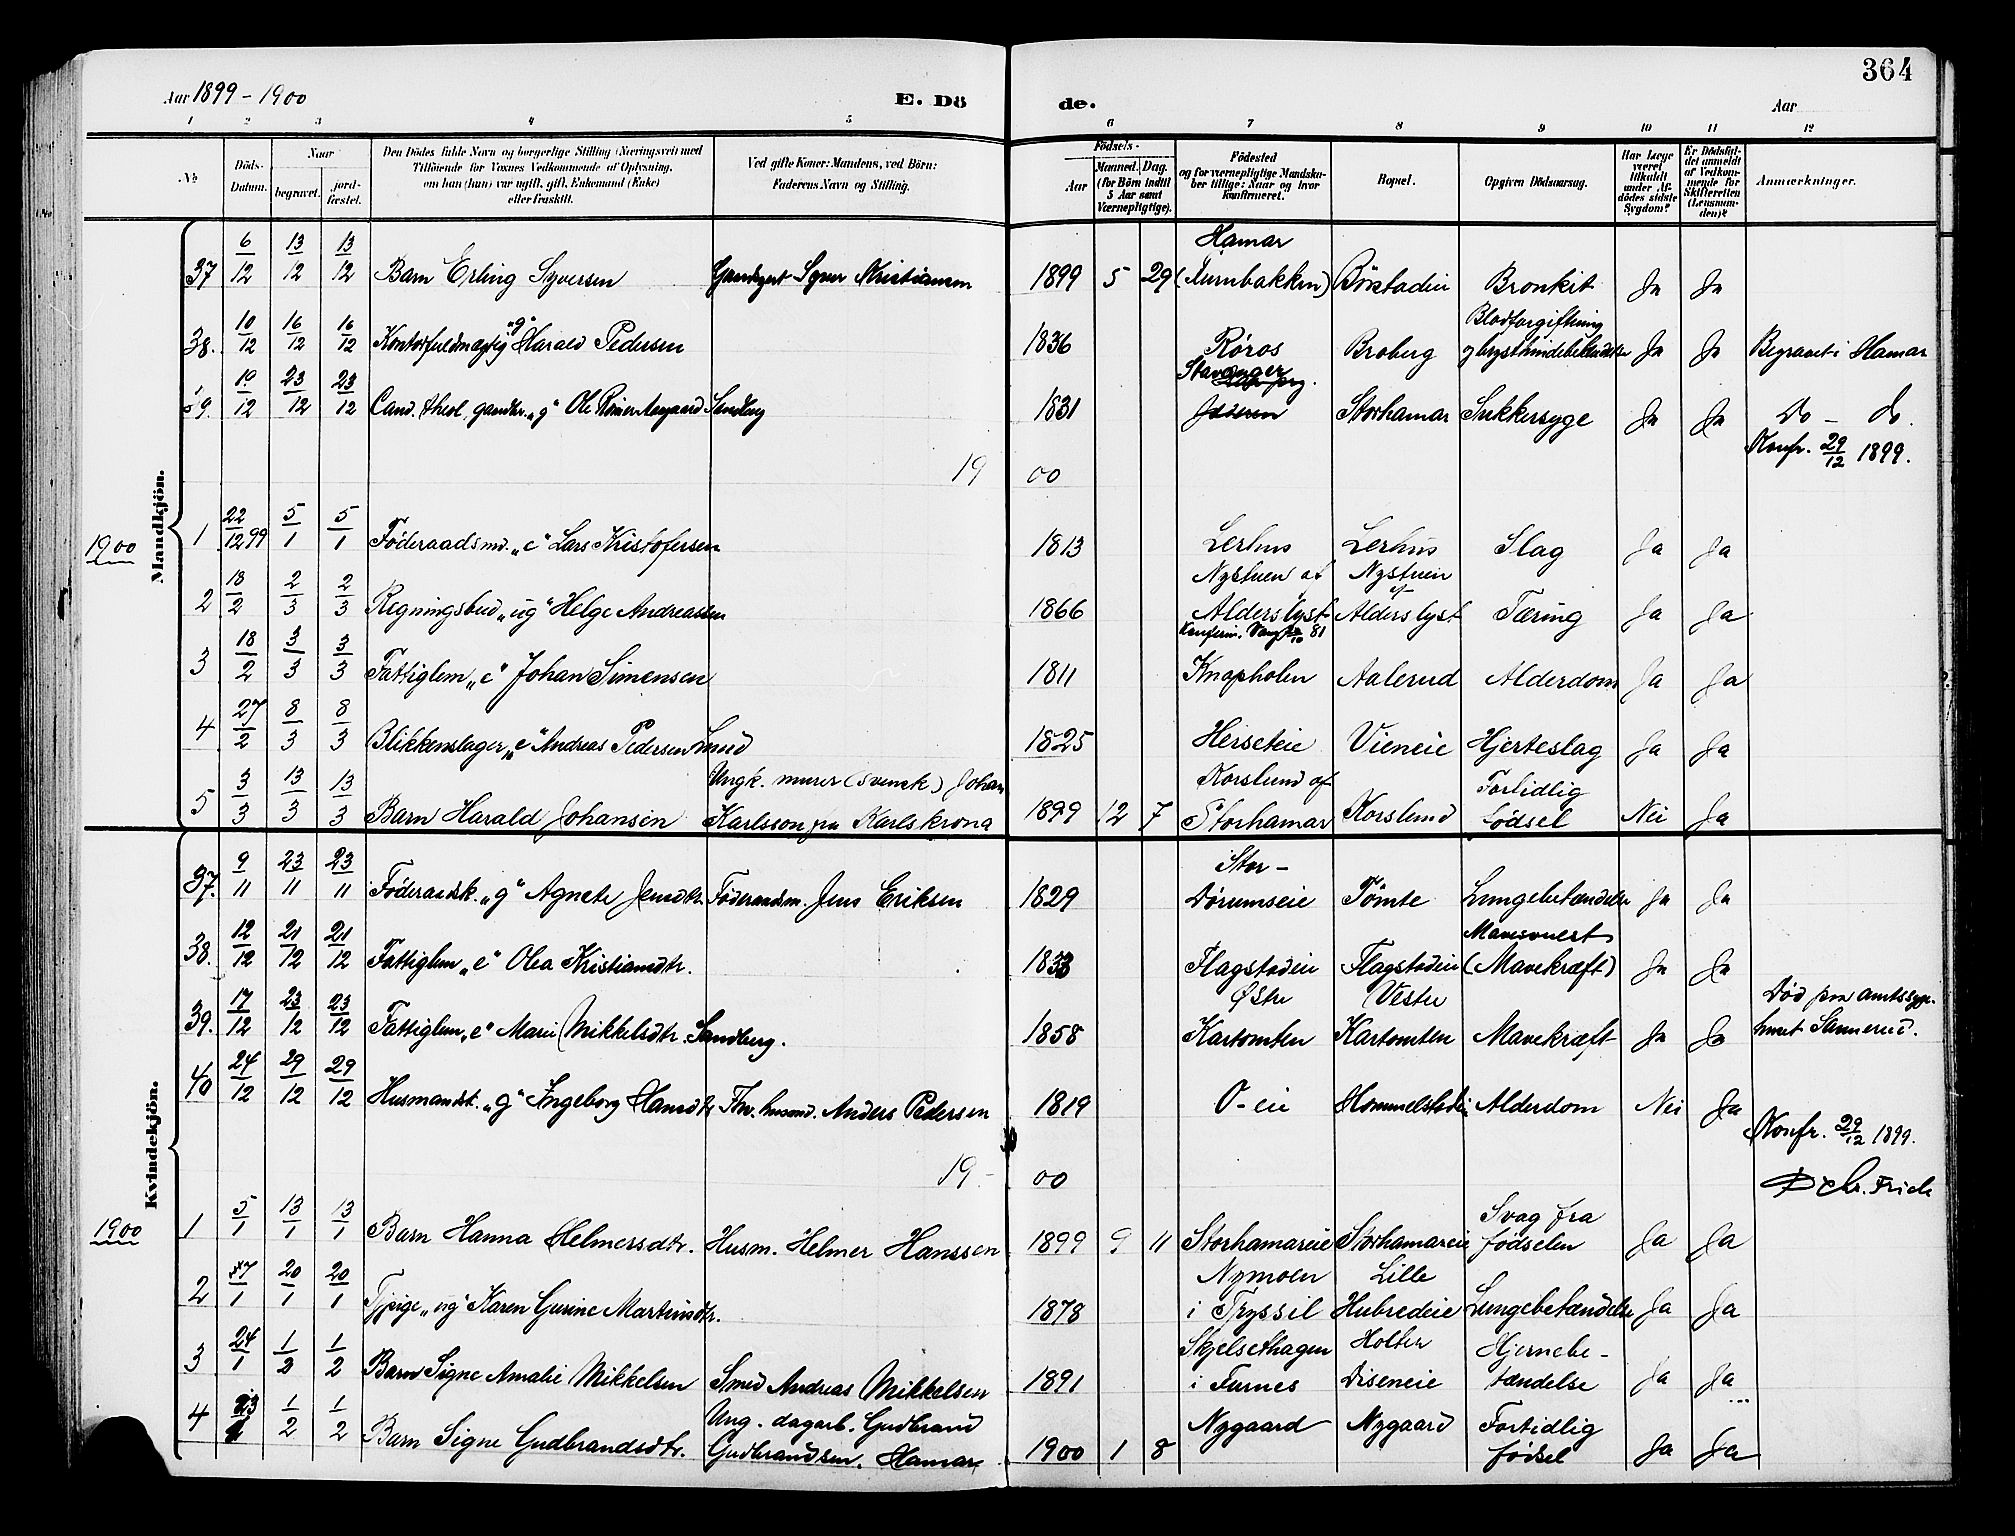 364
Aar 1899 - 1900 E. Dö de. Aar
1 2 3 4 5 6 7 8 9 10 11 12
No Döds-Datum. Naar begravet. jordfæstet. Den Dödes fulde Navn og borgerlige Stilling (Næringsvei) med Tilföiende for Voxnes Vedkommende af Oplysning, om han (hun) var ugift, gift, Enkemand (Enke) eller fraskilt. Ved gifte Koner: Mandens, ved Börn: Faderens Navn og Stilling. Födsels- Aar Maaned. Dag. (for Börn indtil 5 Aar samt Værnepligtige). Födested og for værnepligtige Mandskaber tillige: Naar og hvor konfirmeret. Bopæl. Opgiven Dödsaarsag. Har Læge været tilkaldt under Afdödes sidste Sygdom? Er Dödsfaldet anmeldt af Vedkommende for Skifteretten (Lensmanden)? Anmærkninger.
Mandkjön.
37 6/12 13/12 13/12 Barn Erling Syversen Syver Kristiansen 1899 5 29 Hamar Bronkit Ja Ja
38. 10/12 16/12 16/12 Kontorfuldmægtig "g" Harald Pedersen 1836 Røros Broberg Blodforgiftning og brysthindebetændelse Ja Ja Begravet i Hamar
39. 19/12 23/12 23/12 Cand. theol. "g" Ole 1831 Stavanger Storhamar Sukkersyge Ja Ja Do - do.
Konfr. 29/12 1899.
1900
1900
1 22/12 99 5/1 5/1 Föderaadsmd. "e" Lars Kristofersen 1813 Lerhus Lerhus Slag Ja Ja
2 18/2 2/3 2/3 Regningsbud "ug" Helge Andreassen 1866 Nystuen af Alderslyst Konfirm. Vang 81 Nystuen af Alderslyst Tæring Ja Ja
3 18/2 3/3 3/3 Fattiglem "e" Johan Simensen 1811 Knapholen Aalerud Alderdom Ja Ja
4 27/2 8/3 8/3 Blikkenslager "e" Andreas Pedersen Lund 1825 Herseteie Vieneie Hjerteslag Ja Ja
5 3/3 13/3 13/3 Barn Harald Johansen Ungk. murer (svensk) Johan Karlsson fra Karlskrona 1899 12 7 Korslund af Storhamar Korslund Fortidlig födsel Nei Ja
Kvindekjön.
37. 9/11 23/11 23/11 Föderaadsk. "g" Agnete Jensdtr. Föderaadsm. Jens Eriksen 1829 Stor-Dørumseie Tömte Lungebetændelse Ja Ja
38. 12/12 21/12 21/12 Fattiglem "e" Olea Kristiansdtr. 1833 Flagstadeie Flagstadeie (Mavekræft) Ja Ja
39. 17/12 23/12 23/12 Fattiglem "e" Marie Mikkelsdtr. Sandberg. 1858 Østre Kartomten Vestre Kartomten Mavekræft Ja Ja Död paa amtssygehuset Sannerud.
40 24/12 29/12 29/12 Husmandsk. "g" Ingeborg Hansdtr. Fhv. husmd. Anders Pedersen 1819 O-eie Hommelstadeie Alderdom Nei Ja
Konfr. 29/12 1899.
Chr. Frich
19-00
1900
1 5/1 13/1 13/1 Barn Hanna Helmersdtr. Husm. Helmer Hanssen 1899 9 11 Storhamareie Storhamareie Svag fra födselen Ja Ja
2 17/1 20/1 20/1 Tjpige "ug" Karen Gurine Martinsdtr. 1878 Nymoen i Tryssil Lille Hubredeie Lungebetændelse Ja Ja
3 24/1 1/2 1/2 Barn Signe Amalie Mikkelsen Smed Andreas Mikkelsen 1891 Skjelsethagen i Furnes Holter Diseneie Hjernebe-tændelse Ja Ja
4 1/2 1/2 Barn Signe Gudbrandsdtr. Ung. dagarb. Gudbrand Gudbrandsen. Hamar 1900 1 8 Nygaard Nygaard Fortidlig födsel Ja Ja